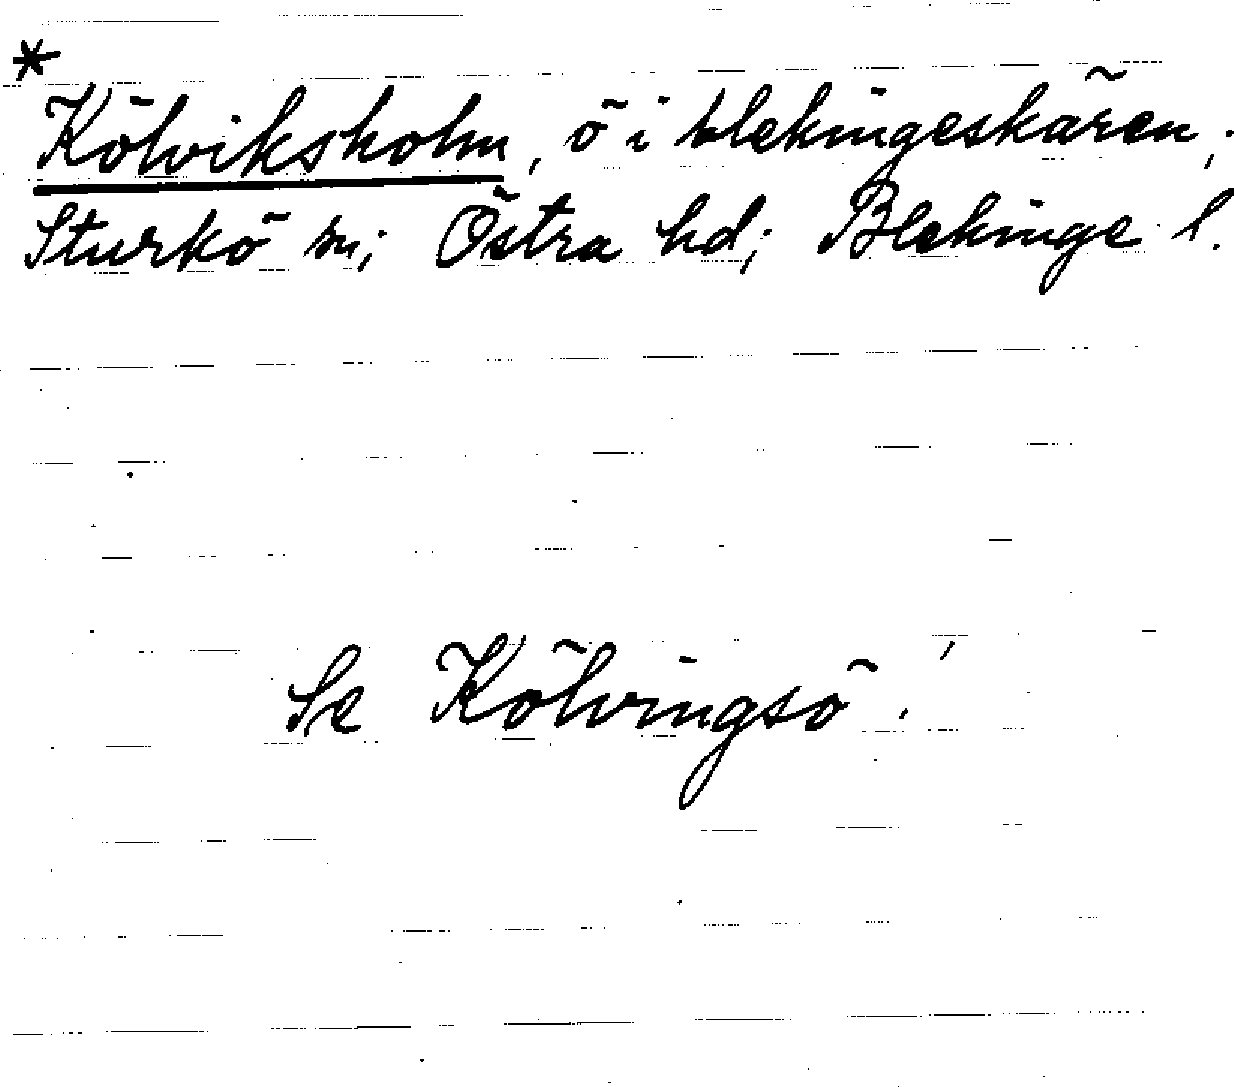 *
Kölviksholm, ö i blekingeskären;
Sturkö sn; Östra hd; Blekinge l.
Se Kölvingsö.